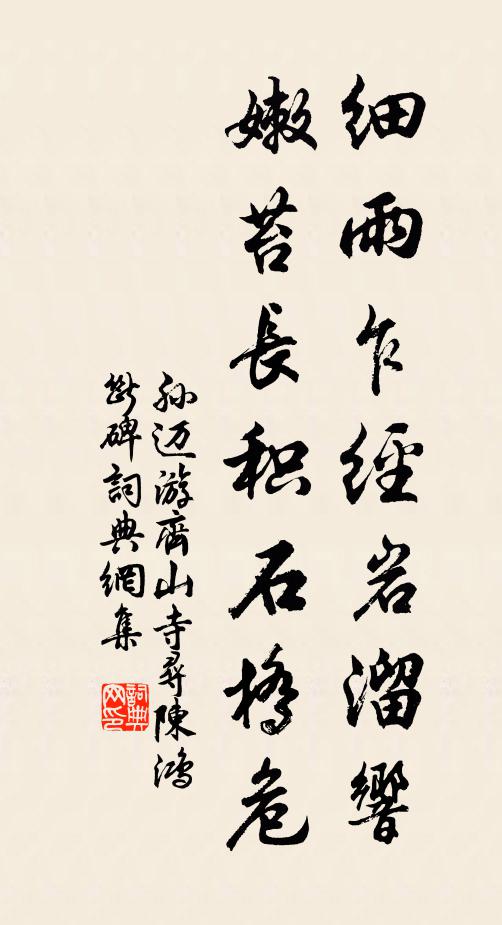 细雨乍經岩溜響
嫩苔長积石橋危
孙迈游齊山寺尋陳鴻
斷碑詞典網集
詞典网印